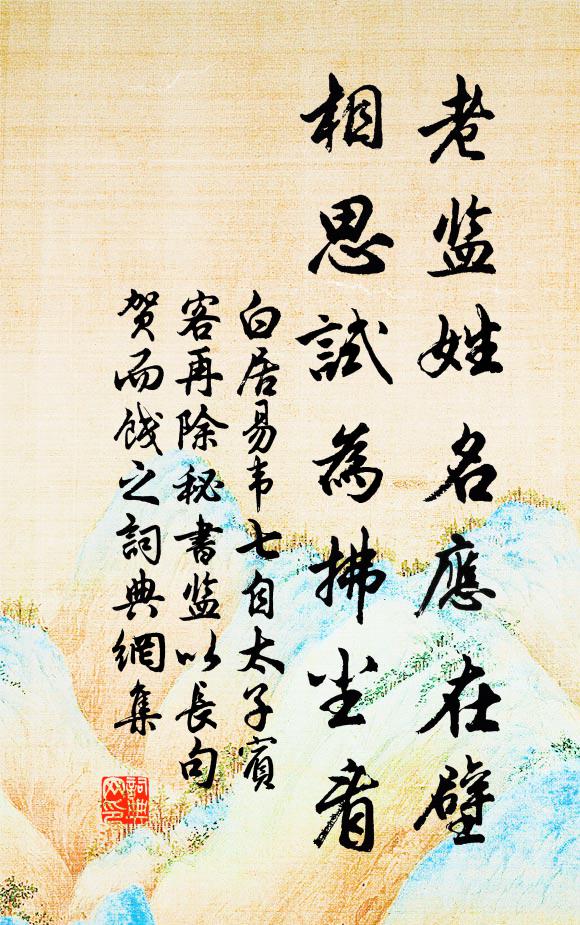 老监姓名應在壁
相思試為拂尘看
白居易韦七自太子賓
客再除秘書监以長句
贺而餞之詞典網集